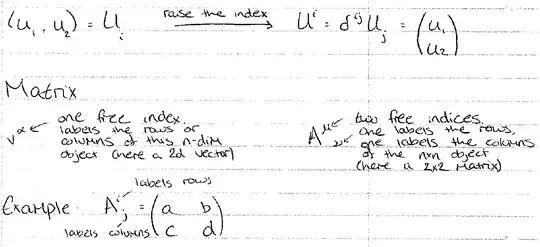 (u₁, u₂) = Uⱼ raise the index Uⁱ = δⁱʲ Uⱼ = (u₁ u₂)
Matrix
one free index.
labels the rows or
v^α ← columns of this n-dim
object (here a 2d vector)
two free indices.
A^μ_ν ← one labels the rows,
one labels the columns
of the n×n object
(here a 2x2 Matrix)
labels rows
Example Aⁱⱼ = (a b
labels columns c d)